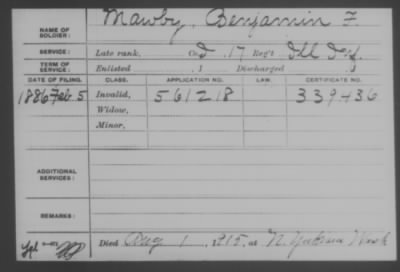 NAME OF SOLDIER: Mawby, Benjamin F.
SERVICE: Late rank, Co. D, 17 Reg't Ill Inf.
TERM OF SERVICE: Enlisted , 1 Discharged , 1
DATE OF FILING. CLASS. APPLICATION NO. LAW. CERTIFICATE NO.
1886 Feb. 5 Invalid, 561218 339436
Widow,
Minor,
ADDITIONAL SERVICES:
REMARKS:
Died Aug 1, 1915, at N. Yakima Wash